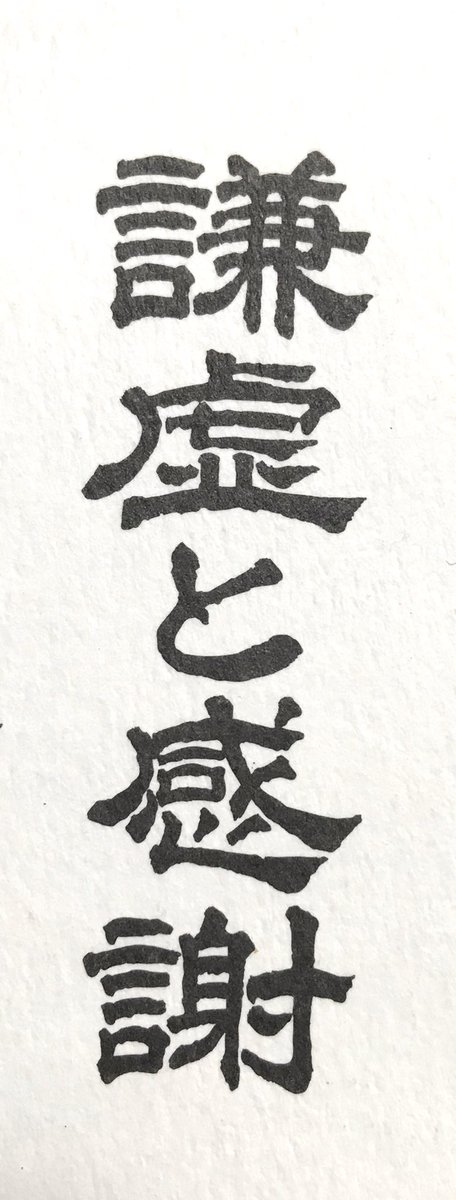 謙虚と感謝